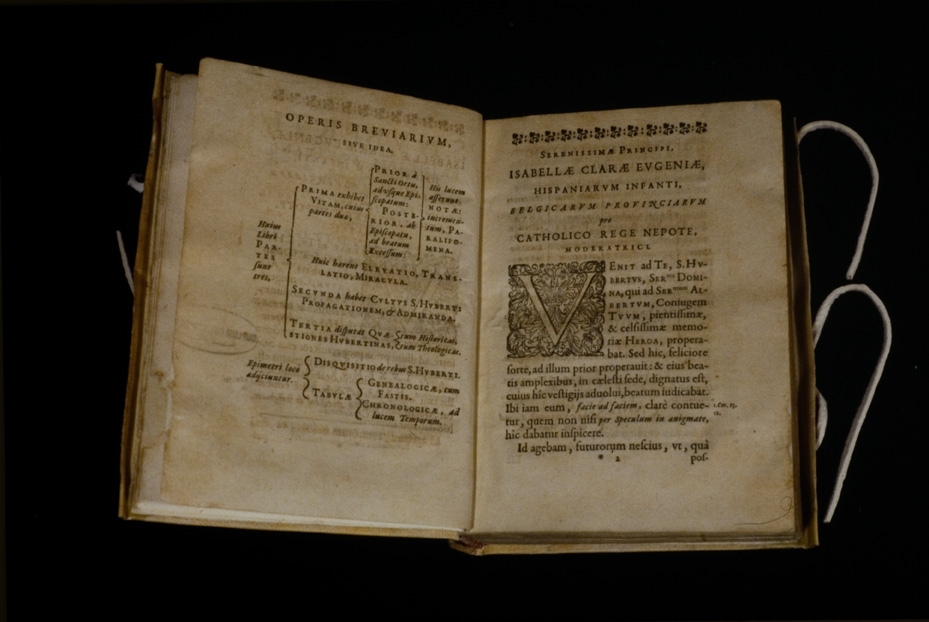 OPERIS BREVIARIVM,
SIVE IDEA.
Huius
Libri
PAR-
TES
sunt
tres,
PRIMA exhibet
VITAM, cuius
partes duæ,
PRIOR à
Sancti Ortu,
ad vsque Epi-
scopatum:
POSTE-
RIOR, ab
Episcopatu,
ad beatum
Excessum:
His lucem
afferunt
NOTÆ:
incremen-
tum, PA-
RALIPO-
MENA.
Huic hærent ELEVATIO, TRANS-
LATIO, MIRACVLA.
SECVNDA habet CVLTVS S. HVBERTI
PROPAGATIONEM, & ADMIRANDA.
TERTIA disputat QVÆ-
STIONES HVBERTINAS,
cum Historicas,
tum Theologicas.
Epimetri loco
adijciuntur.
DISQVISITIO de rebus S. HVBERTI.
TABVLÆ
GENEALOGICÆ, cum
FASTIS.
CHRONOLOGICÆ, ad
lucem Temporum.
SERENISSIMÆ PRINCIPI,
ISABELLÆ CLARÆ EVGENIÆ,
HISPANIARVM INFANTI,
BELGICARVM PROVINCIARVM
pro
CATHOLICO REGE NEPOTE,
MODERATRICI.
VENIT ad TE, S. HV-
BERTVS, SER.ma DOMI-
NA, qui ad SER.mum AL-
BERTVM, Coniugem
TVVM, pientissimæ,
& celsissimæ memo-
riæ HEROA, propera-
bat. Sed hic, feliciore
sorte, ad illum prior properauit: & eius bea-
tis amplexibus, in cælesti sede, dignatus est,
cuius hic vestigijs aduolui, beatum iudicabat.
Ibi iam eum, facie ad faciem, clarè contue-
tur, quem non nisi per speculum in ænigmate,
hic dabatur inspicere.
1. Cor. 13.
12.
Id agebam, futurorum nescius, vt, quâ
* 2 pos-